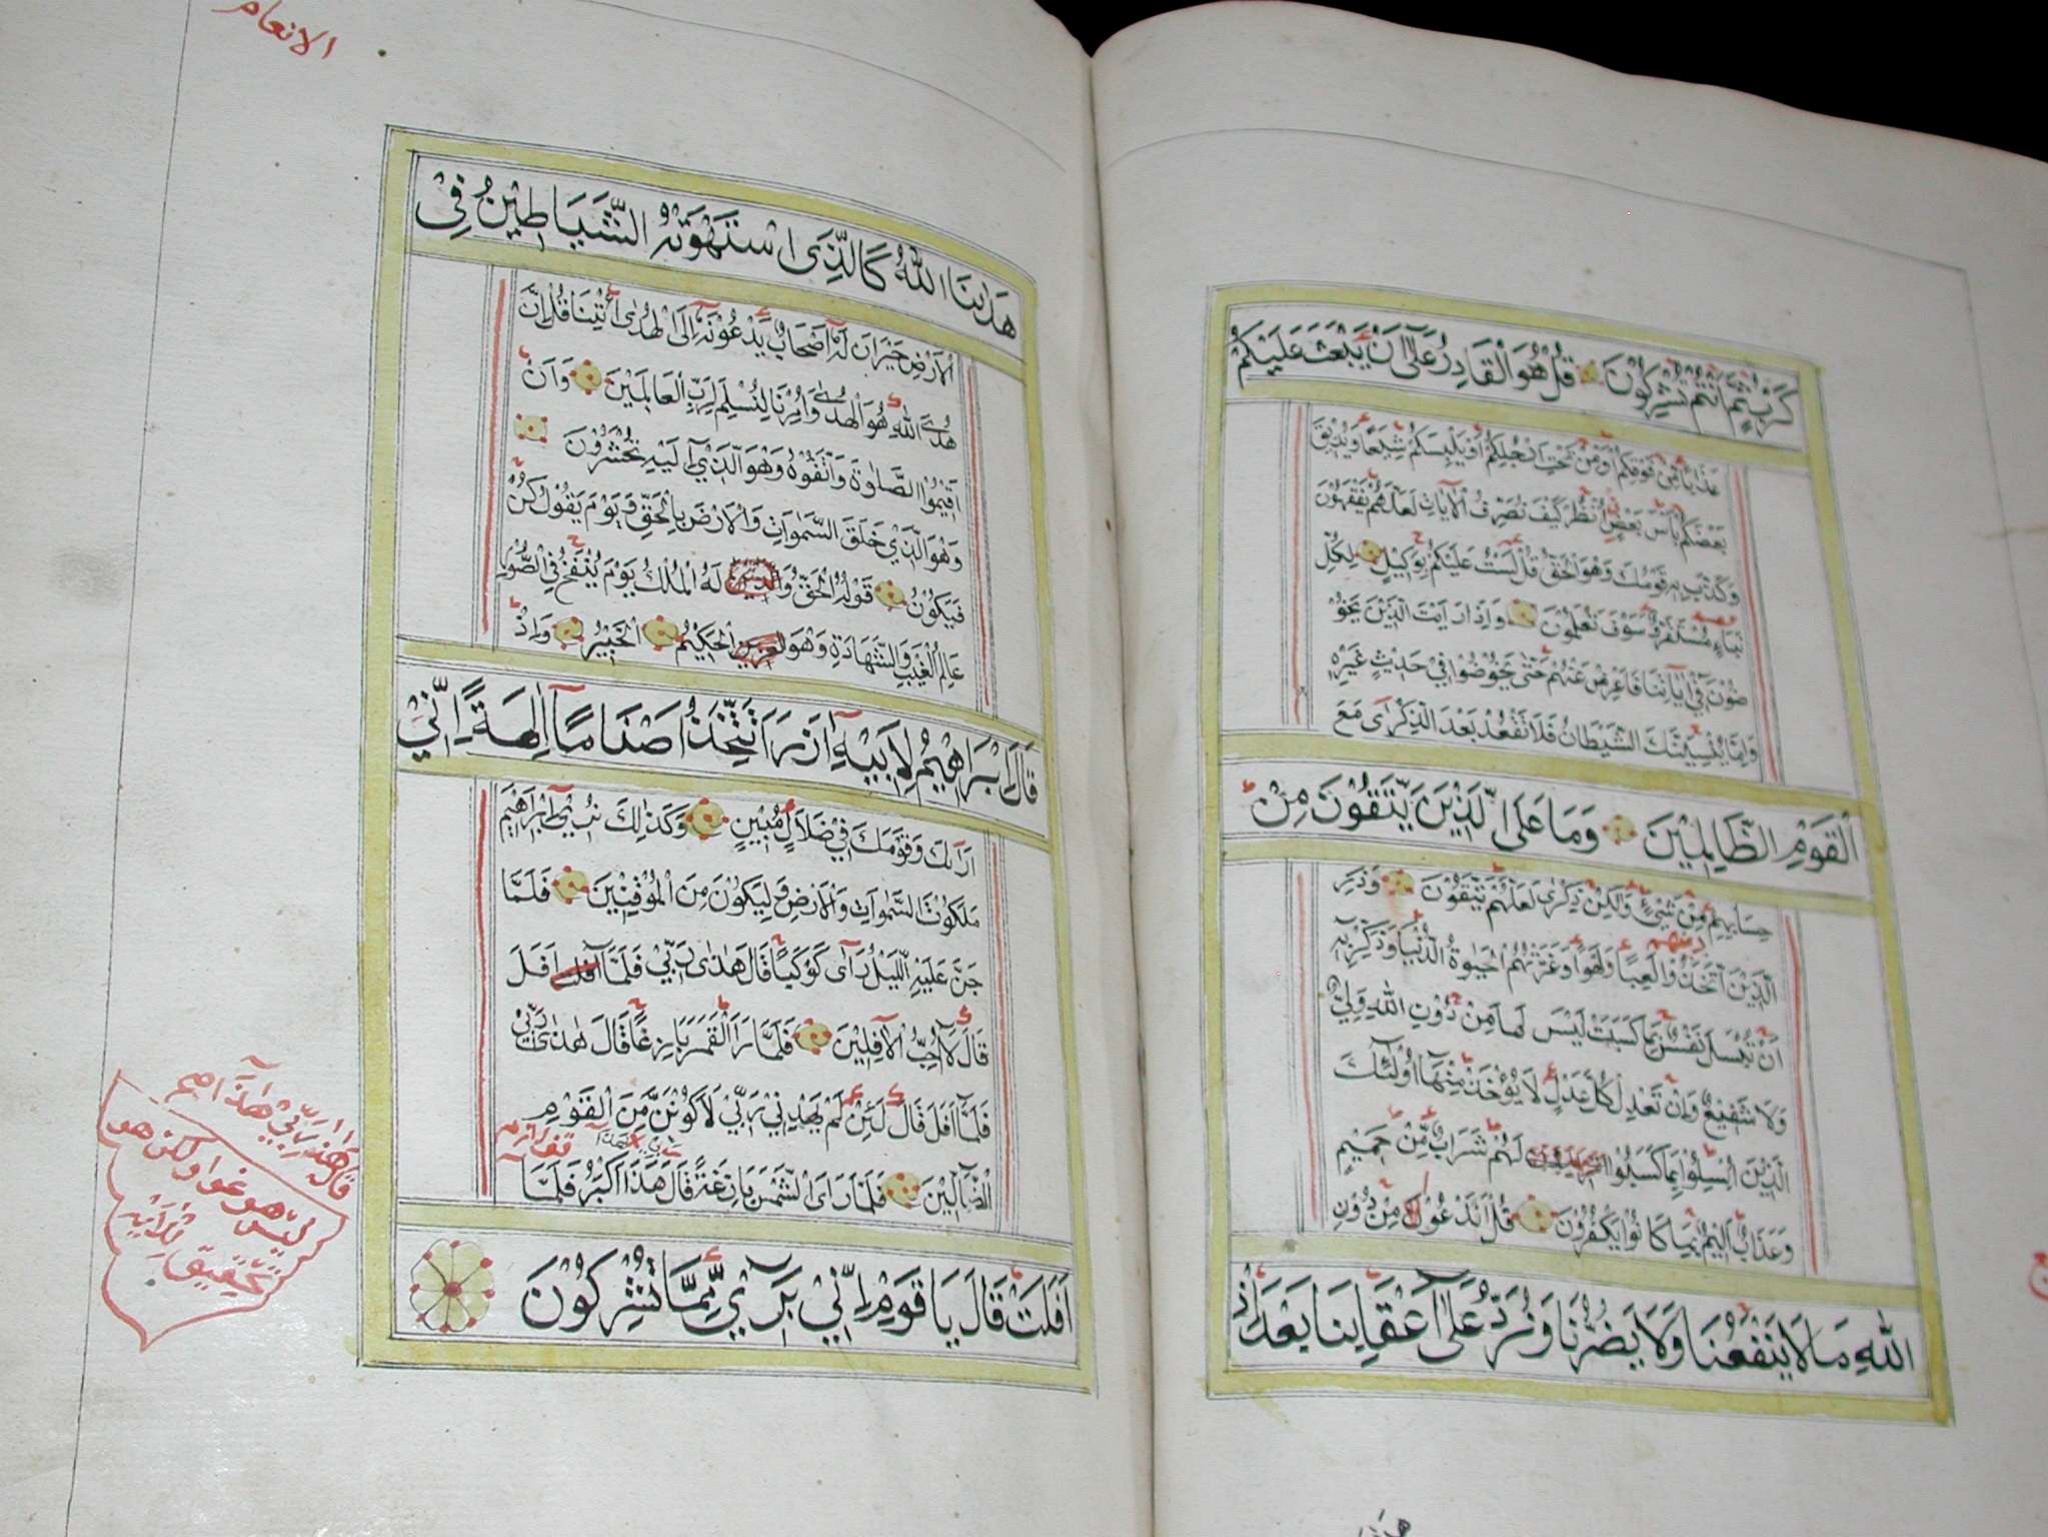 كَرْبٍ ثُمَّ اَنْتُمْ تُشْرِكُوْنَ قُلْ هُوَ الْقَادِرُ عَلَىٓ اَنْ يَبْعَثَ عَلَيْكُمْ
عَذَابًا مِنْ فَوْقِكُمْ اَوْ مِنْ تَحْتِ اَرْجُلِكُمْ اَوْ يَلْبِسَكُمْ شِيَعًا وَيُذِيْقَ
بَعْضَكُمْ بَاْسَ بَعْضٍ اُنْظُرْ كَيْفَ نُصَرِّفُ الْاٰيَاتِ لَعَلَّهُمْ يَفْقَهُوْنَ
وَكَذَّبَ بِهِ قَوْمُكَ وَهُوَ الْحَقُّ قُلْ لَسْتُ عَلَيْكُمْ بِوَكِيْلٍ لِكُلِّ
نَبَاءٍ مُسْتَقَرٌّ وَسَوْفَ تَعْلَمُوْنَ وَاِذَا رَاَيْتَ الَّذِيْنَ يَخُوْ
ضُوْنَ فِيْٓ اٰيَاتِنَا فَاَعْرِضْ عَنْهُمْ حَتّٰى يَخُوْضُوْا فِيْ حَدِيْثٍ غَيْرِهِ
وَاِمَّا يُنْسِيَنَّكَ الشَّيْطَانُ فَلَا تَقْعُدْ بَعْدَ الذِّكْرٰى مَعَ
الْقَوْمِ الظَّالِمِيْنَ وَمَا عَلَى الَّذِيْنَ يَتَّقُوْنَ مِنْ
حِسَابِهِمْ مِنْ شَيْءٍ وَلٰكِنْ ذِكْرٰى لَعَلَّهُمْ يَتَّقُوْنَ وَذَرِ
دينهم
الَّذِيْنَ اتَّخَذُوْا لَعِبًا وَلَهْوًا وَغَرَّتْهُمُ الْحَيٰوةُ الدُّنْيَا وَذَكِّرْ بِهٖٓ
اَنْ تُبْسَلَ نَفْسٌ بِمَا كَسَبَتْ لَيْسَ لَهَا مِنْ دُوْنِ اللّٰهِ وَلِيٌّ
وَلَا شَفِيْعٌ وَاِنْ تَعْدِلْ كُلَّ عَدْلٍ لَا يُؤْخَذْ مِنْهَا اُولٰٓئِكَ
الَّذِيْنَ اُبْسِلُوْا بِمَا كَسَبُوْا لَهُمْ شَرَابٌ مِّنْ حَمِيْمٍ
وَعَذَابٌ اَلِيْمٌ بِمَا كَانُوْا يَكْفُرُوْنَ قُلْ اَنَدْعُوْا مِنْ دُوْنِ
اللّٰهِ مَا لَا يَنْفَعُنَا وَلَا يَضُرُّنَا وَنُرَدُّ عَلَىٓ اَعْقَابِنَا بَعْدَ اِذْ
الانعام
هَدٰىنَا اللّٰهُ كَالَّذِى اسْتَهْوَتْهُ الشَّيَاطِيْنُ فِى
الْاَرْضِ حَيْرَانَ لَهُٓ اَصْحَابٌ يَدْعُوْنَهُٓ اِلَى الْهُدٰى ائْتِنَا قُلْ اِنَّ
هُدَى اللّٰهِ هُوَ الْهُدٰى وَاُمِرْنَا لِنُسْلِمَ لِرَبِّ الْعَالَمِيْنَ وَاَنْ
اَقِيْمُوا الصَّلٰوةَ وَاتَّقُوْهُ وَهُوَ الَّذِيْٓ اِلَيْهِ تُحْشَرُوْنَ
وَهُوَ الَّذِيْ خَلَقَ السَّمٰوَاتِ وَالْاَرْضَ بِالْحَقِّ وَيَوْمَ يَقُوْلُ كُنْ
فَيَكُوْنُ قَوْلُهُ الْحَقُّ وَ لَهُ الْمُلْكُ يَوْمَ يُنْفَخُ فِى الصُّوْرِ
عَالِمُ الْغَيْبِ وَالشَّهَادَةِ وَهُوَ الْحَكِيْمُ الْخَبِيْرُ وَاِذْ
قَالَ اِبْرَاهِيْمُ لِاَبِيْهِ اٰزَرَ اَتَتَّخِذُ اَصْنَامًا اٰلِهَةً اِنِّيْٓ
اَرٰىكَ وَقَوْمَكَ فِيْ ضَلَالٍ مُبِيْنٍ وَكَذٰلِكَ نُرِيْٓ اِبْرَاهِيْمَ
مَلَكُوْتَ السَّمٰوَاتِ وَالْاَرْضِ وَلِيَكُوْنَ مِنَ الْمُوْقِنِيْنَ فَلَمَّا
جَنَّ عَلَيْهِ اللَّيْلُ رَاٰى كَوْكَبًا قَالَ هٰذٰى رَبِّيْ فَلَمَّآ اَفَلَ
قَالَ لَآ اُحِبُّ الْاٰفِلِيْنَ فَلَمَّا رَاَ الْقَمَرَ بَازِغًا قَالَ هٰذٰى رَبِّيْ
فَلَمَّآ اَفَلَ قَالَ لَئِنْ لَمْ يَهْدِنِيْ رَبِّيْ لَاَكُوْنَنَّ مِنَ الْقَوْمِ
الضَّآلِّيْنَ فَلَمَّا رَاَى الشَّمْسَ بَازِغَةً قَالَ هَذَا اَكْبَرُ فَلَمَّآ
اَفَلَتْ قَالَ يَا قَوْمِ اِنِّيْ بَرِٓيْءٌ مِّمَّا تُشْرِكُوْنَ